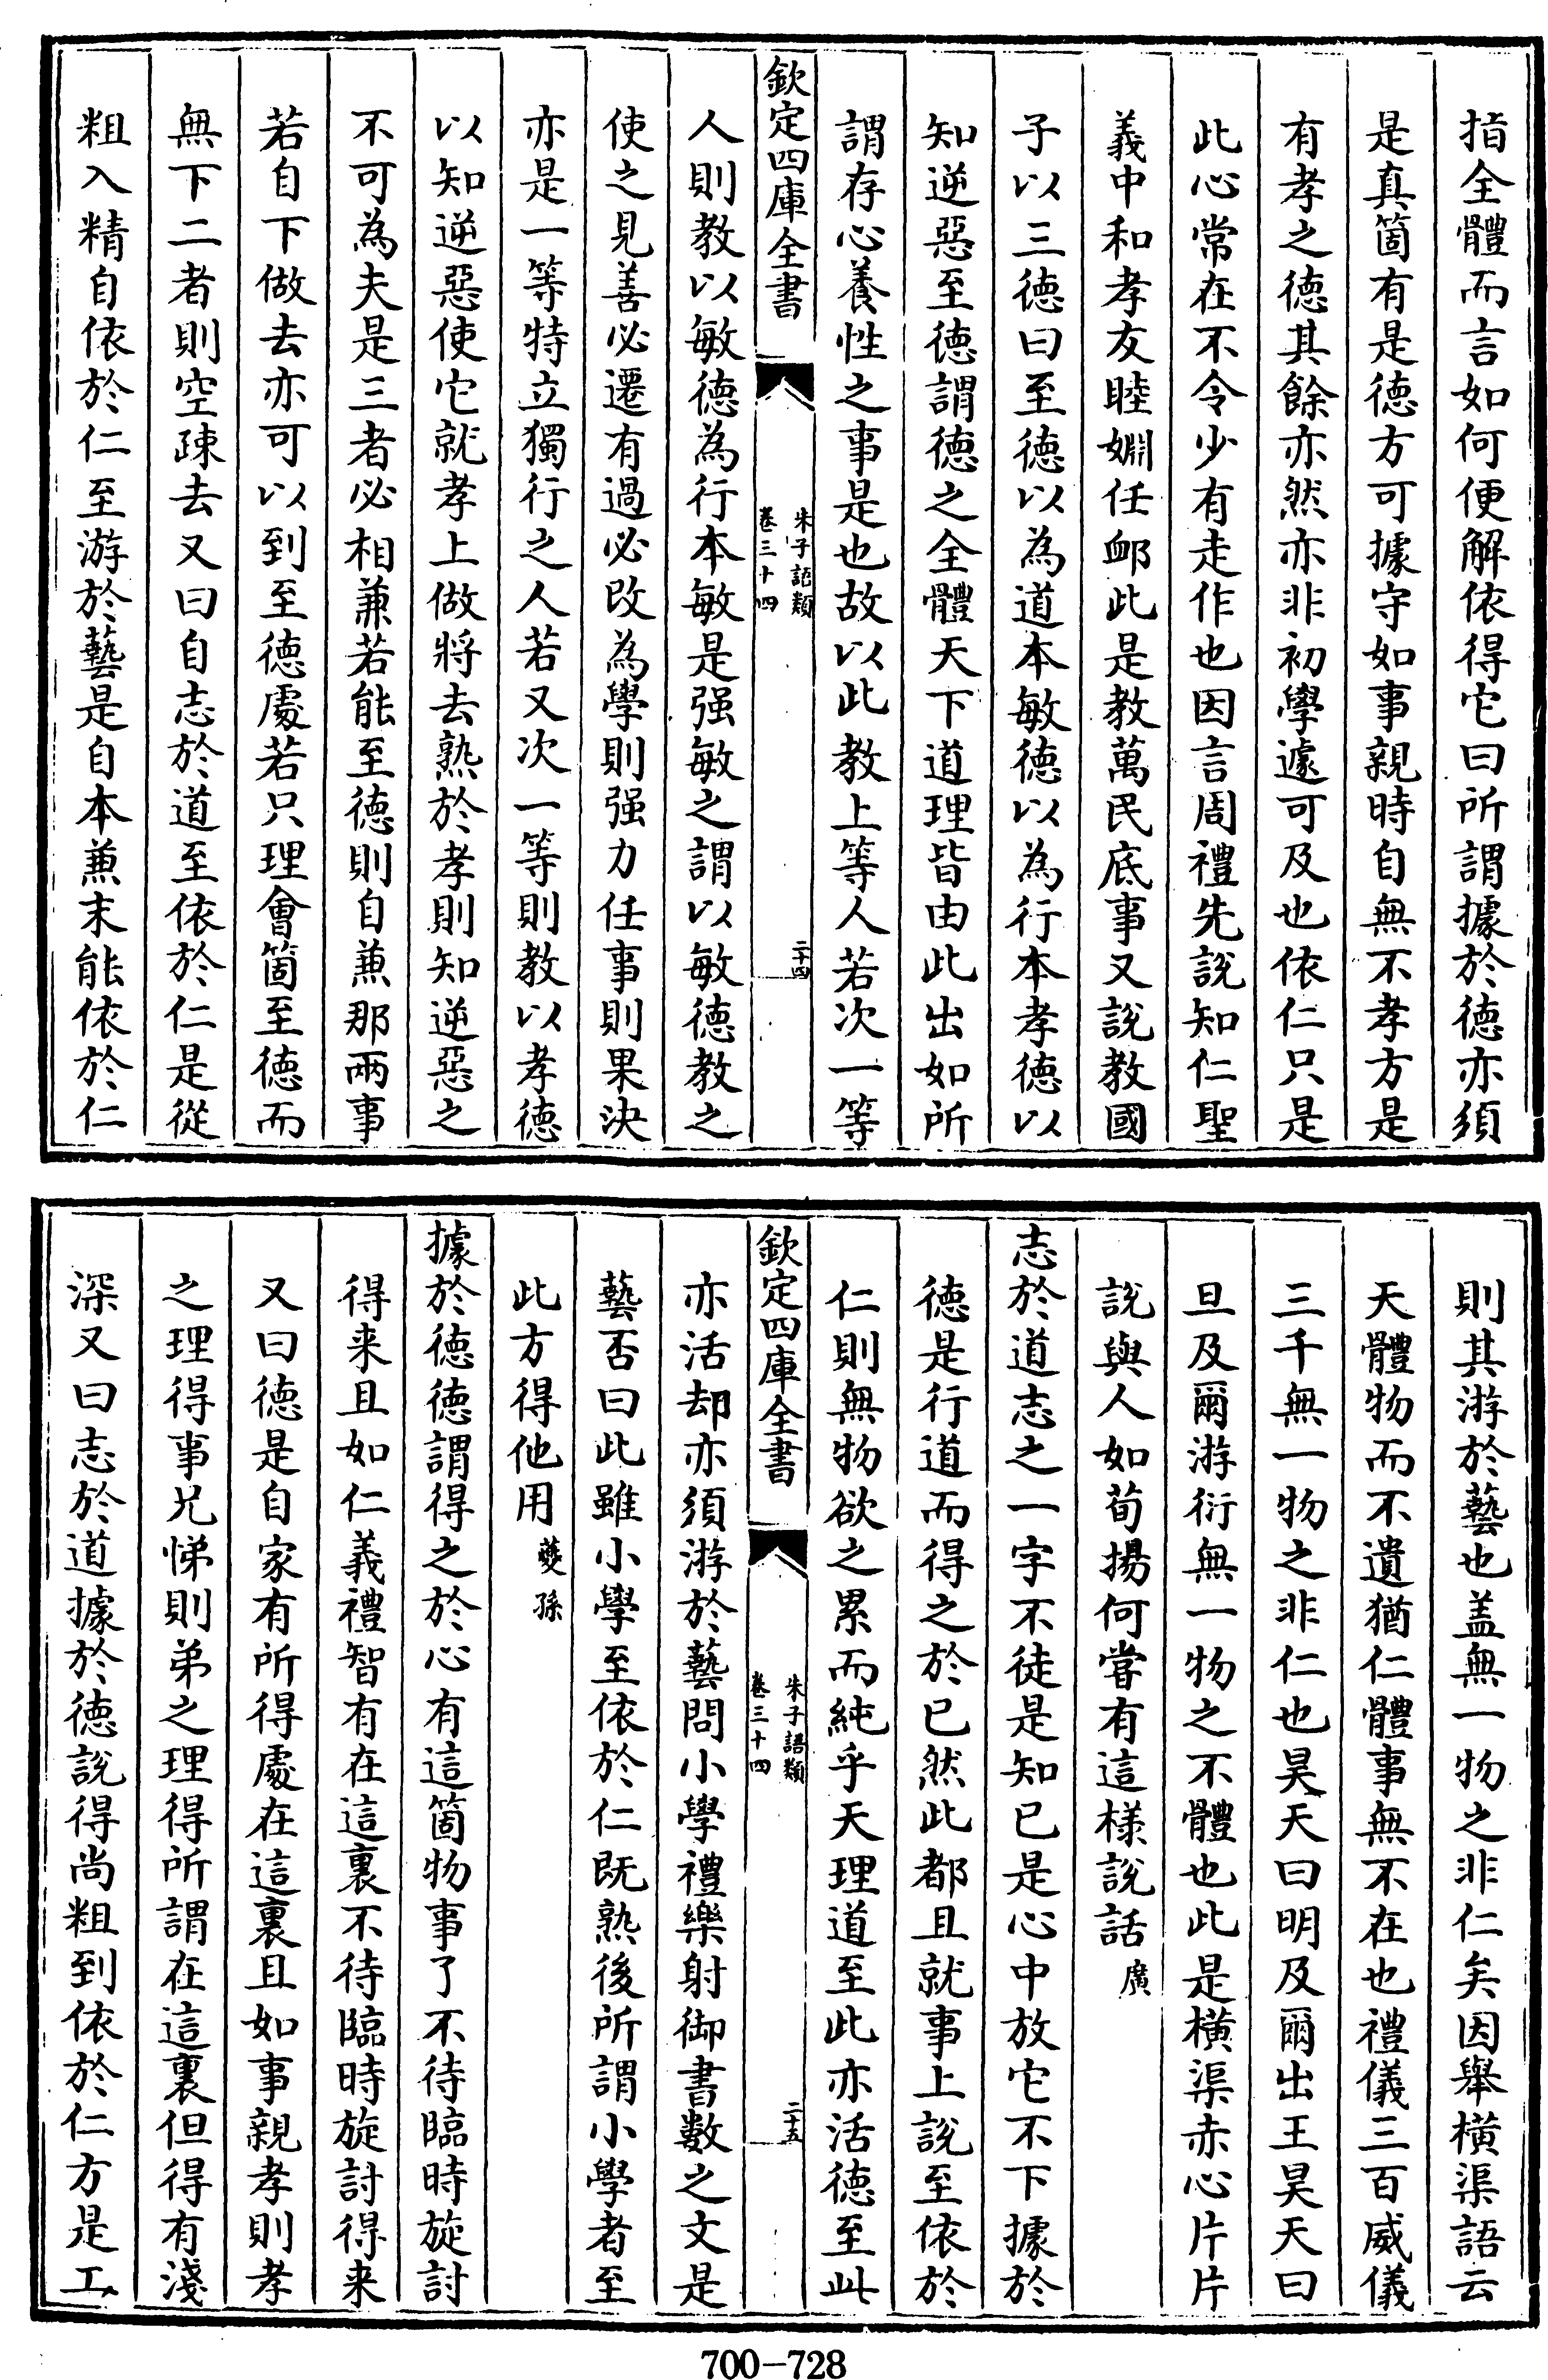 指全體而言如何便解依得它曰所謂據於德亦須
是真箇有是德方可據守如事親時自無不孝方是
有孝之德其餘亦然亦非初學遽可及也依仁只是
此心常在不令少有走作也因言周禮先說知仁聖
義中和孝友睦婣任䘏此是教萬民底事又說教國
子以三德曰至德以為道本敏德以為行本孝德以
知逆惡至德謂德之全體天下道理皆由此出如所
謂存心養性之事是也故以此教上等人若次一等
欽定四庫全書
朱子語類
卷三十四
二十四
人則教以敏德為行本敏是强敏之謂以敏德教之
使之見善必遷有過必改為學則强力任事則果決
亦是一等特立獨行之人若又次一等則教以孝德
以知逆惡使它就孝上做將去熟於孝則知逆惡之
不可為夫是三者必相兼若能至德則自兼那兩事
若自下做去亦可以到至德處若只理會箇至德而
無下二者則空疎去又曰自志於道至依於仁是從
粗入精自依於仁至游於藝是自本兼末能依於仁
則其游於藝也盖無一物之非仁矣因舉橫渠語云
天體物而不遺猶仁體事無不在也禮儀三百威儀
三千無一物之非仁也昊天曰明及爾出王昊天曰
旦及爾游衍無一物之不體也此是橫渠赤心片片
說與人如荀揚何嘗有這樣說話廣
志於道志之一字不徒是知已是心中放它不下據於
德是行道而得之於已然此都且就事上說至依於
仁則無物欲之累而純乎天理道至此亦活德至此
欽定四庫全書
朱子語類
卷三十四
二十五
亦活却亦須游於藝問小學禮樂射御書數之文是
藝否曰此雖小學至依於仁既熟後所謂小學者至
此方得他用夔孫
據於德德謂得之於心有這箇物事了不待臨時旋討
得来且如仁義禮智有在這裏不待臨時旋討得来
又曰德是自家有所得處在這裏且如事親孝則孝
之理得事兄悌則弟之理得所謂在這裏但得有淺
深又曰志於道據於德說得尚粗到依於仁方是工
700-728